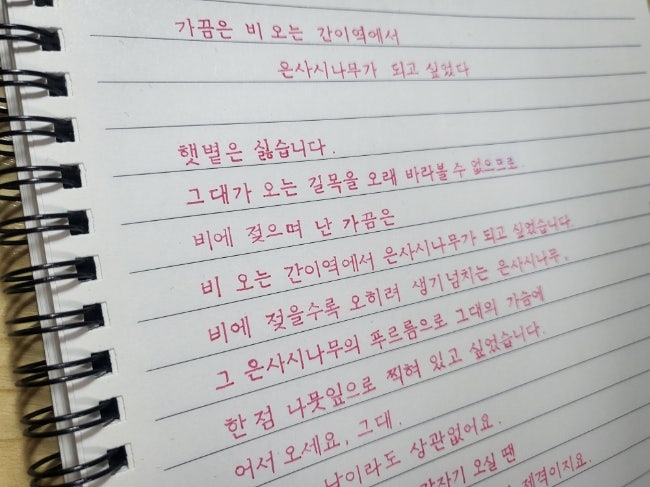 가끔은 비 오는 간이역에서
은사시나무가 되고 싶었다
햇볕은 싫습니다.
그대가 오는 길목을 오래 바라볼 수 없으므로
비에 젖으며 난 가끔은
비 오는 간이역에서 은사시나무가 되고 싶었습니다
비에 젖을수록 오히려 생기넘치는 은사시나무,
그 은사시나무의 푸르름으로 그대의 가슴에
한 점 나뭇잎으로 찍혀 있고 싶었습니다.
어서 오세요, 그대.
날이라도 상관없어요.
갑자기 오실 땐
제격이지요.